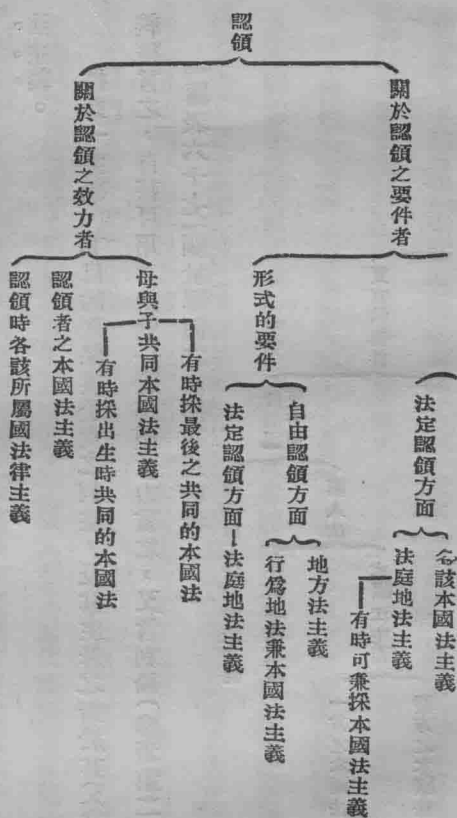 認領
關於認領之要件者
法定認領方面
各該本國法主義
法庭地法主義
有時可兼採本國法主義
形式的要件
自由認領方面
地方法主義
行爲地法兼本國法主義
法定認領方面
法庭地法主義
關於認領之效力者
母與子共同本國法主義
有時採最後之共同的本國法
有時採出生時共同的本國法
認領者之本國法主義
認領時各該所屬國法律主義